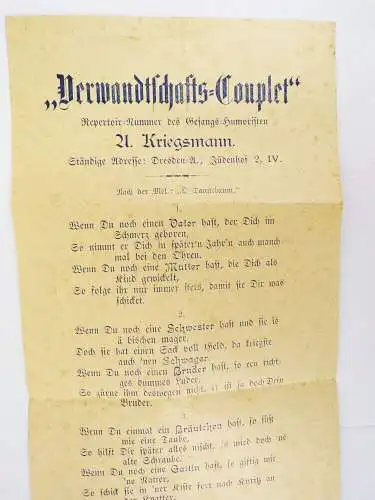 „Verwandtschafts=Couplet“
Repertoir=Nummer des Gesangs=Humoristen
A. Kriegsmann.
Ständige Adresse: Dresden=A., Jüdenhof 2, IV.
Nach der Mel.: „O Tannebaum.“
1.
Wenn Du noch einen Vater hast, der Dich im
Schmerz geboren,
So nimmt er Dich in später'n Jahr'n auch manch
mal bei den Ohren.
Wenn Du noch eine Mutter hast, die Dich als
Kind gewickelt,
So folge ihr nur immer stets, damit sie Dir was
schicket.
2.
Wenn Du noch eine Schwester hast und sie is
ä bischen mager,
Doch sie hat einen Sack voll Geld, da kriegste
auch 'nen Schwager.
Wenn Du noch einen Bruder hast, so een richt=
ges dummes Luder,
So zürne ihm deswegen nicht, es ist ja doch Dein
Bruder.
3.
Wenn Du einmal ein Bräutchen hast, so süß
wie eine Taube,
So hilft Dir später alles nischt, 's wird doch 'ne
alte Schraube.
Wenn Du noch eine Gattin hast, so giftig wie
'ne Natter,
So schick sie in 'ner Kiste fort nach Kyritz an
den Knatter.